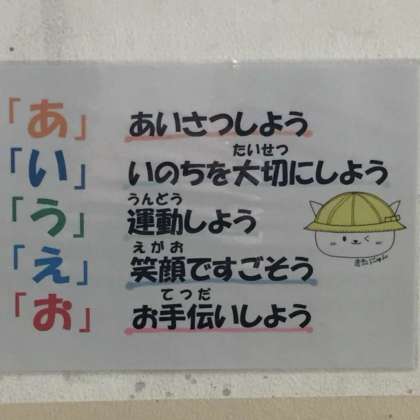 「あ」 あいさつしよう
たいせつ
「い」 いのちを大切にしよう
うんどう
「う」 運動しよう
えがお
「え」 笑顔ですごそう
てつだ
「お」 お手伝いしよう